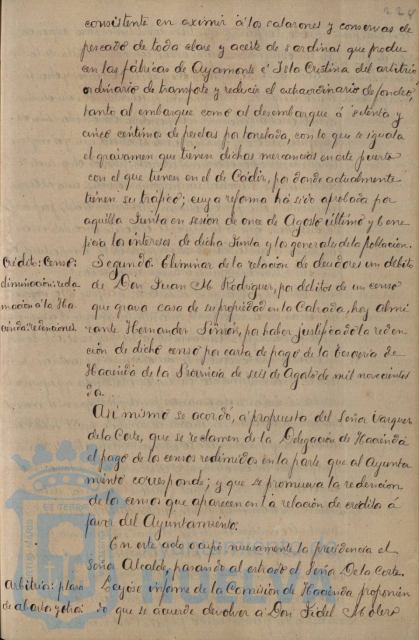 224
consistente en eximir á los salazones y conservas de
pescado de toda clase y aceite de sardinas que produ
cen las fábricas de Ayamonte é Isla Cristina del arbitrio
ordinario de transporte y reducir el extraordinario de fondeo
tanto al embarque como al desembarque á setenta y
cinco centimos de pesetas por tonelada, con lo que se iguala
el gravamen que tienen dichas mercancias en este puerto
con el que tienen en el de Cádiz, por donde actualmente
tienen su tráfico; cuya reforma há sido aprobada por
aquella Junta en sesión de once de Agosto último y bene
ficia los intereses de dicha Junta y los generales de la población.
Crédito: Censo:
disminucion: recla
macion á la Ha
cienda: redenciones.
Segundo. Eliminar de la relación de deudores un débito
de Don Juan M. Rodriguez, por débitos de un censo
que grava casa de su propiedad en la Calzada, hoy almi
rante Hernandez Pinzón, por haber justificado la reden
ción de dicho censo por carta de pago de la tesoreria de
Hacienda de la Provincia de seis de Agosto de mil novecientos
Asi mismo se acordó, á propuesta del Señor Vazquez
de la Corte, que se reclamen de la Delegación de Hacienda
el pago de los censos redimidos en la parte que al Ayunta
miento corresponde; y que se promueva la redencion
de los censos que aparecen en la relación de créditos á
favor del Ayuntamiento.
En este acto ocupó nuevamente la presidencia el
Señor Alcalde, pasando al estrado el Señor De la Corte.
Arbitrios: plaza
de abasto y otros
Leyóse informe de la Comisión de Hacienda proponien
do que se acuerde devolver á Don Fidel